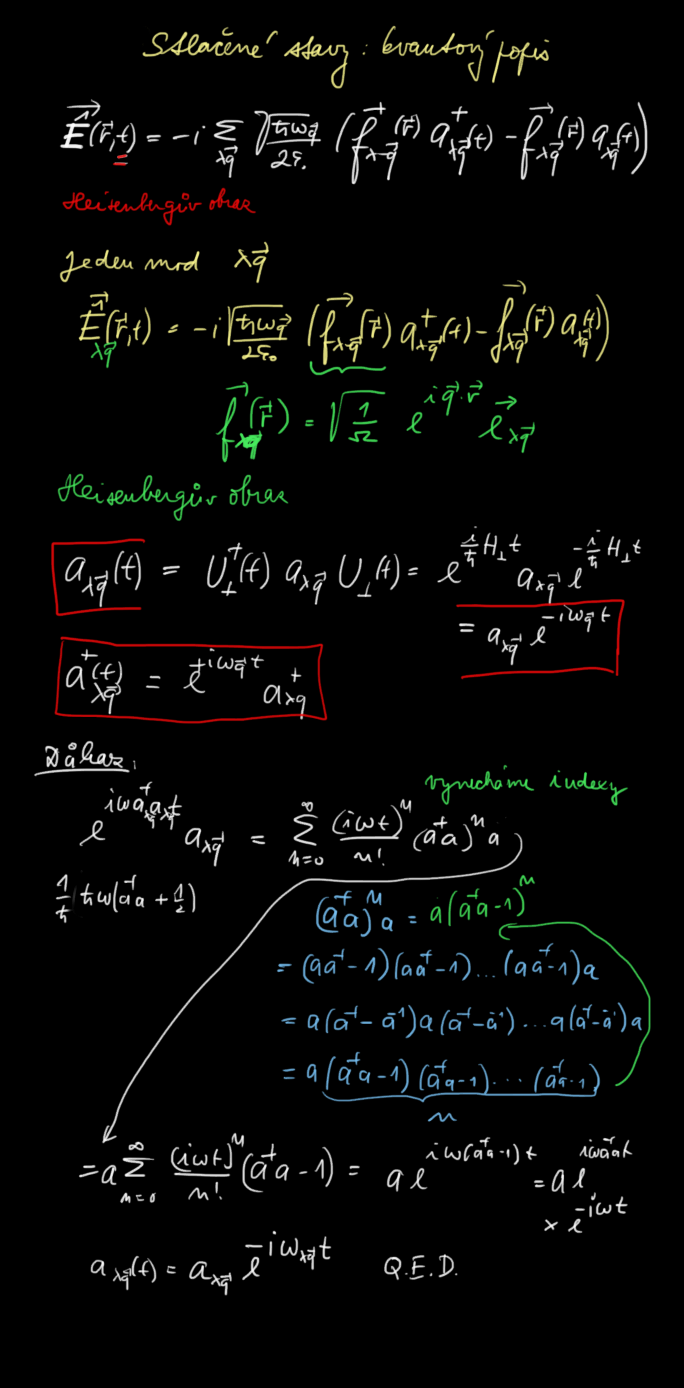 Stlačené stavy: kvantový popis
$\hat{\vec{E}}(\vec{r},t) = -i \sum_{\lambda\vec{q}} \sqrt{\frac{\hbar\omega_{\vec{q}}}{2\varepsilon_0}} \left( \vec{f}_{\lambda-\vec{q}}(\vec{r}) a^+_{\lambda\vec{q}}(t) - \vec{f}_{\lambda\vec{q}}(\vec{r}) a_{\lambda\vec{q}}(t) \right)$
Heisenbergův obraz
Jeden mod $\lambda\vec{q}$
$\hat{\vec{E}}_{\lambda\vec{q}}(\vec{r},t) = -i \sqrt{\frac{\hbar\omega_{\vec{q}}}{2\varepsilon_0}} \left( \vec{f}_{\lambda-\vec{q}}(\vec{r}) a^+_{\lambda\vec{q}}(t) - \vec{f}_{\lambda\vec{q}}(\vec{r}) a_{\lambda\vec{q}}(t) \right)$
$\vec{f}_{\lambda\vec{q}}(\vec{r}) = \sqrt{\frac{1}{\Omega}} \, e^{i\vec{q}\cdot\vec{r}} \, \vec{e}_{\lambda\vec{q}}$
Heisenbergův obraz
$a_{\lambda\vec{q}}(t) = U^+_\perp(t) \, a_{\lambda\vec{q}} \, U_\perp(t) = e^{\frac{i}{\hbar}H_\perp t} a_{\lambda\vec{q}} e^{-\frac{i}{\hbar}H_\perp t}$
$= a_{\lambda\vec{q}} e^{-i\omega_{\vec{q}} t}$
$a^+_{\lambda\vec{q}}(t) = e^{+i\omega_{\vec{q}} t} a^+_{\lambda\vec{q}}$
Důkaz:
vynecháme indexy
$e^{i\omega a^+_{\lambda\vec{q}} a_{\lambda\vec{q}} t} a_{\lambda\vec{q}} = \sum_{n=0}^{\infty} \frac{(i\omega t)^n}{n!} (a^+a)^n a$
$\frac{1}{\hbar} \hbar\omega (a^+a + \frac{1}{2})$
$(a^+a)^n a = a(a^+a-1)^n$
$= (aa^+-1)(aa^+-1)\ldots(aa^+-1)a$
$= a(a^+-a^{-1})a(a^+-a^{-1})\ldots a(a^+-a^{-1})a$
$= a(a^+a-1)(a^+a-1)\ldots(a^+a-1)$
n
$= a \sum_{n=0}^{\infty} \frac{(i\omega t)^n}{n!} (a^+a-1) = a e^{i\omega(a^+a-1)t} = a e^{i\omega a^+a t}$
$\times e^{-i\omega t}$
$a_{\lambda\vec{q}}(t) = a_{\lambda\vec{q}} e^{-i\omega_{\lambda\vec{q}} t}$ Q.E.D.